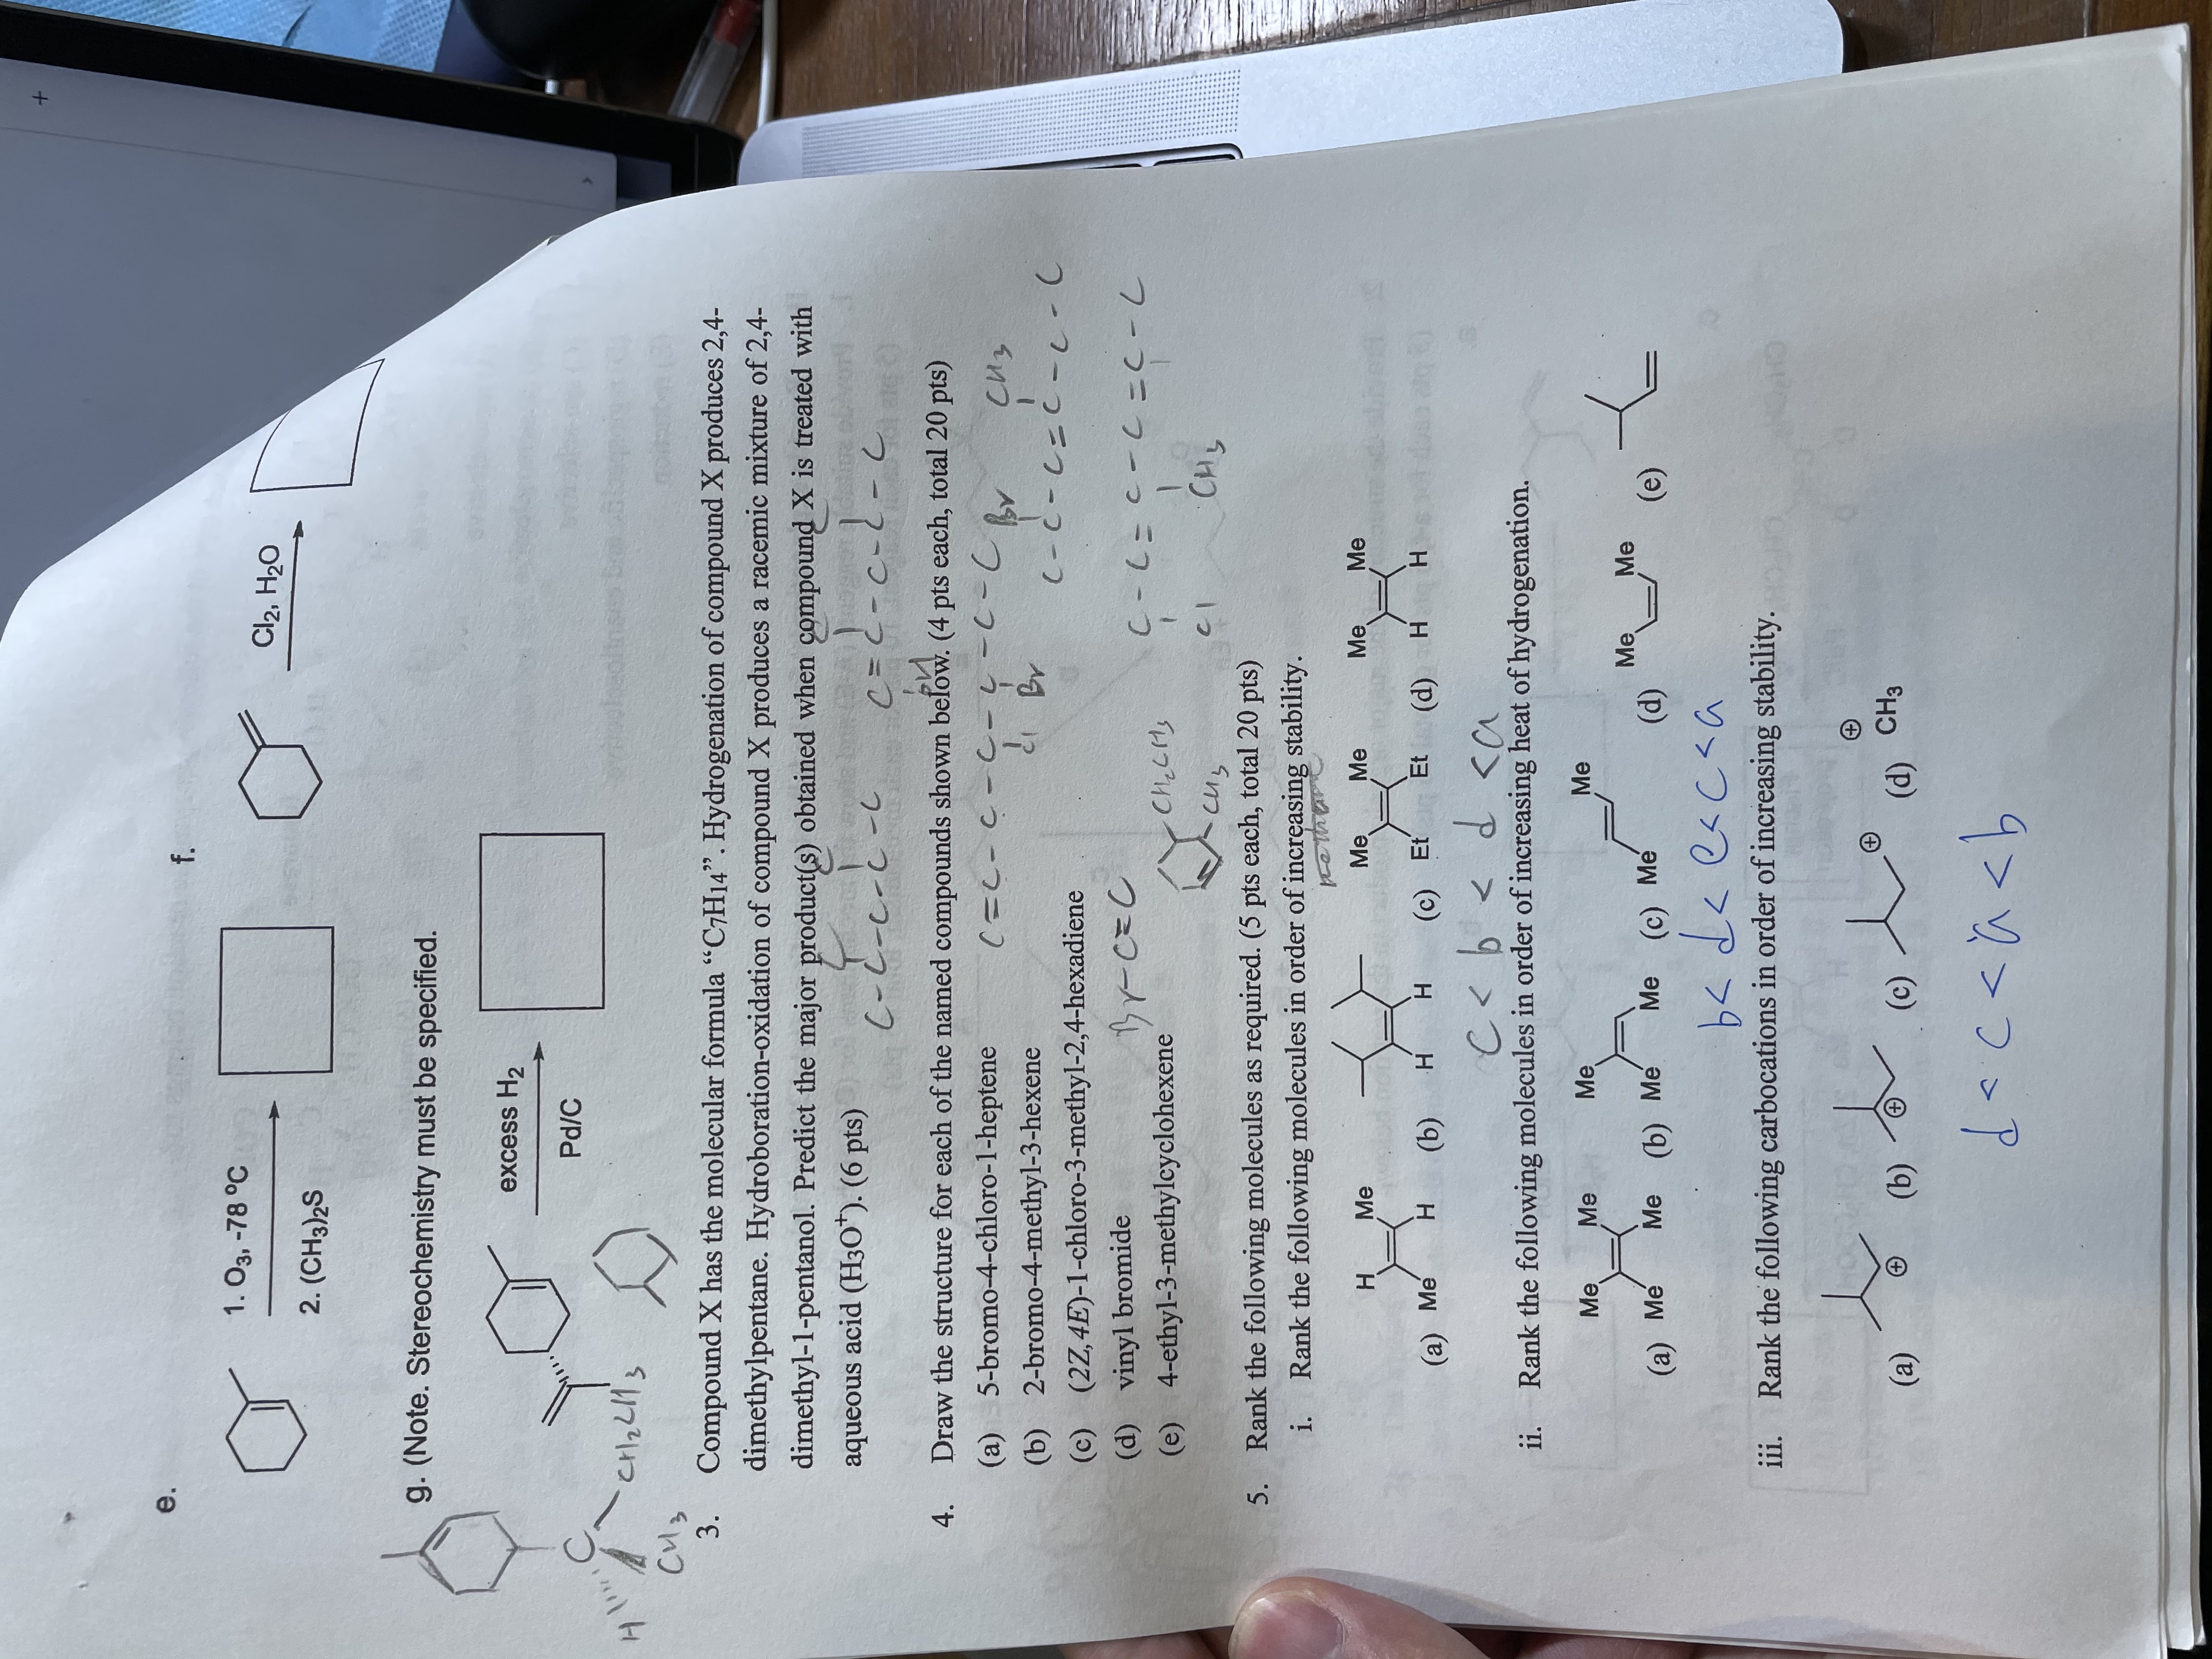 e.
f.
1. O3, -78 ºC
2. (CH3)2S
Cl2, H2O
g. (Note. Stereochemistry must be specified.
excess H2
Pd/C
C
H
CH2CH3
CH3
3. Compound X has the molecular formula “C7H14”. Hydrogenation of compound X produces 2,4-
dimethylpentane. Hydroboration-oxidation of compound X produces a racemic mixture of 2,4-
dimethyl-1-pentanol. Predict the major product(s) obtained when compound X is treated with
aqueous acid (H3O+). (6 pts)
C C C C
C-C-C-C-C C=C-C-C-C
OH
4. Draw the structure for each of the named compounds shown below. (4 pts each, total 20 pts)
(a) 5-bromo-4-chloro-1-heptene
C=C-C-C-C-C-C
Cl Br
(b) 2-bromo-4-methyl-3-hexene
Br CH3
C-C-C=C-C-C
(c) (2Z,4E)-1-chloro-3-methyl-2,4-hexadiene
C-C=C-C=C-C
Cl CH3
(d) vinyl bromide
Br-C=C
(e) 4-ethyl-3-methylcyclohexene
CH2CH3
CH3
5. Rank the following molecules as required. (5 pts each, total 20 pts)
i. Rank the following molecules in order of increasing stability.
H Me Me Me Me Me
(a) Me H (b) H H (c) Et Et (d) H H
c < b < d < a
ii. Rank the following molecules in order of increasing heat of hydrogenation.
Me Me Me Me Me Me
(a) Me Me (b) Me Me (c) Me (d) (e)
b < d < e < c < a
iii. Rank the following carbocations in order of increasing stability.
(a) ⊕ (b) ⊕ (c) ⊕ (d) ⊕ CH3
d < c < a < b